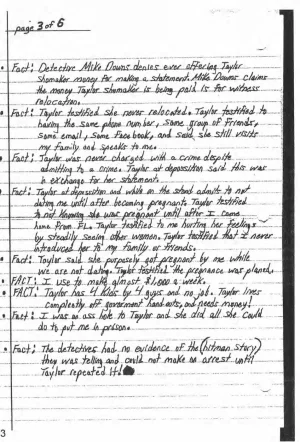 page 3 of 6
• Fact: Detective Mike Downs denies ever offering Taylor
Shomaker money for making a statement. Mike Downs claims
the money Taylor Shomaker is being paid is for witness
relocation.
• Fact: Taylor testified she never relocated. Taylor testified to
having the same phone number, same group of friends,
same email, same Facebook, and said she still visits
my family and speaks to me.
• Fact: Taylor was never charged with a crime despite
admitting to a crime. Taylor at deposition said this was
in exchange for her statements.
• Fact: Taylor at deposition and while on the stand admits to not
dating me until after becoming pregnant. Taylor testified
to not knowing she was pregnant until after I came
home from FL. Taylor testified to me hurting her feelings
by steadily seeing other women. Taylor testified that I never
introduced her to my family or friends.
• Fact: Taylor said she purposely got pregnant by me while
we are not dating. Taylor testified the pregnance was planed.
• FACT: I use to make almost $1,000 a week.
• FACT: Taylor has 4 kids by 4 guys and no job. Taylor lives
completely off government hand-outs, and needs money!
• Fact: I was an ass hole to Taylor and she did all she could
do to put me in prison.
• Fact: The detectives had no evidence of the (hitman story)
they was telling and could not make an arrest until
Taylor repeated it!
3